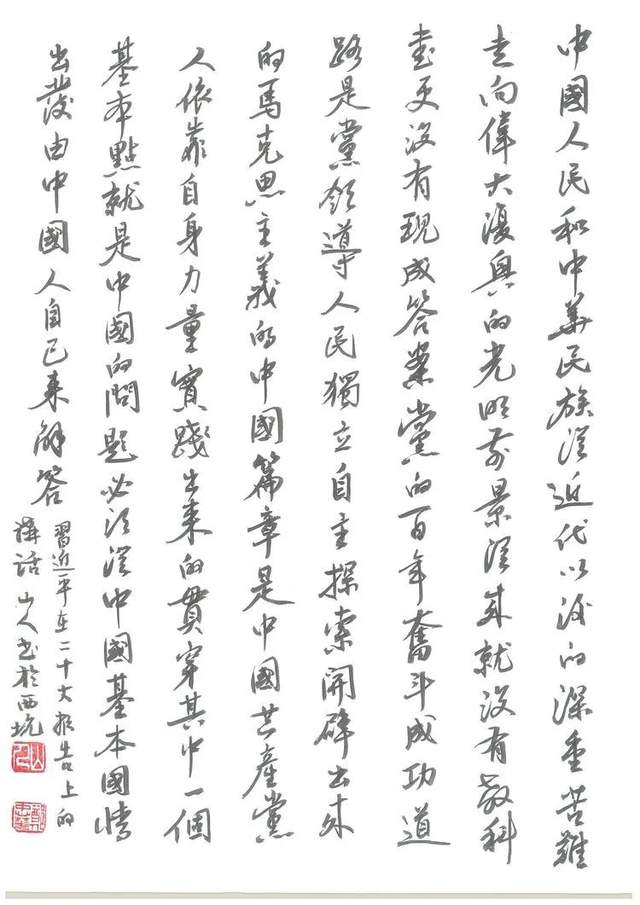 中國人民和中華民族從近代以後的深重苦難
走向偉大復興的光明前景從來就沒有教科
書更沒有現成答案黨的百年奮斗成功道
路是黨領導人民獨立自主探索開辟出來
的馬克思主義的中國篇章是中國共產黨
人依靠自身力量實踐出來的貫穿其中一個
基本點就是中國的問題必須從中國基本國情
出發由中國人自己來解答
習近平在二十大報告上的
講話 山人書於西坑